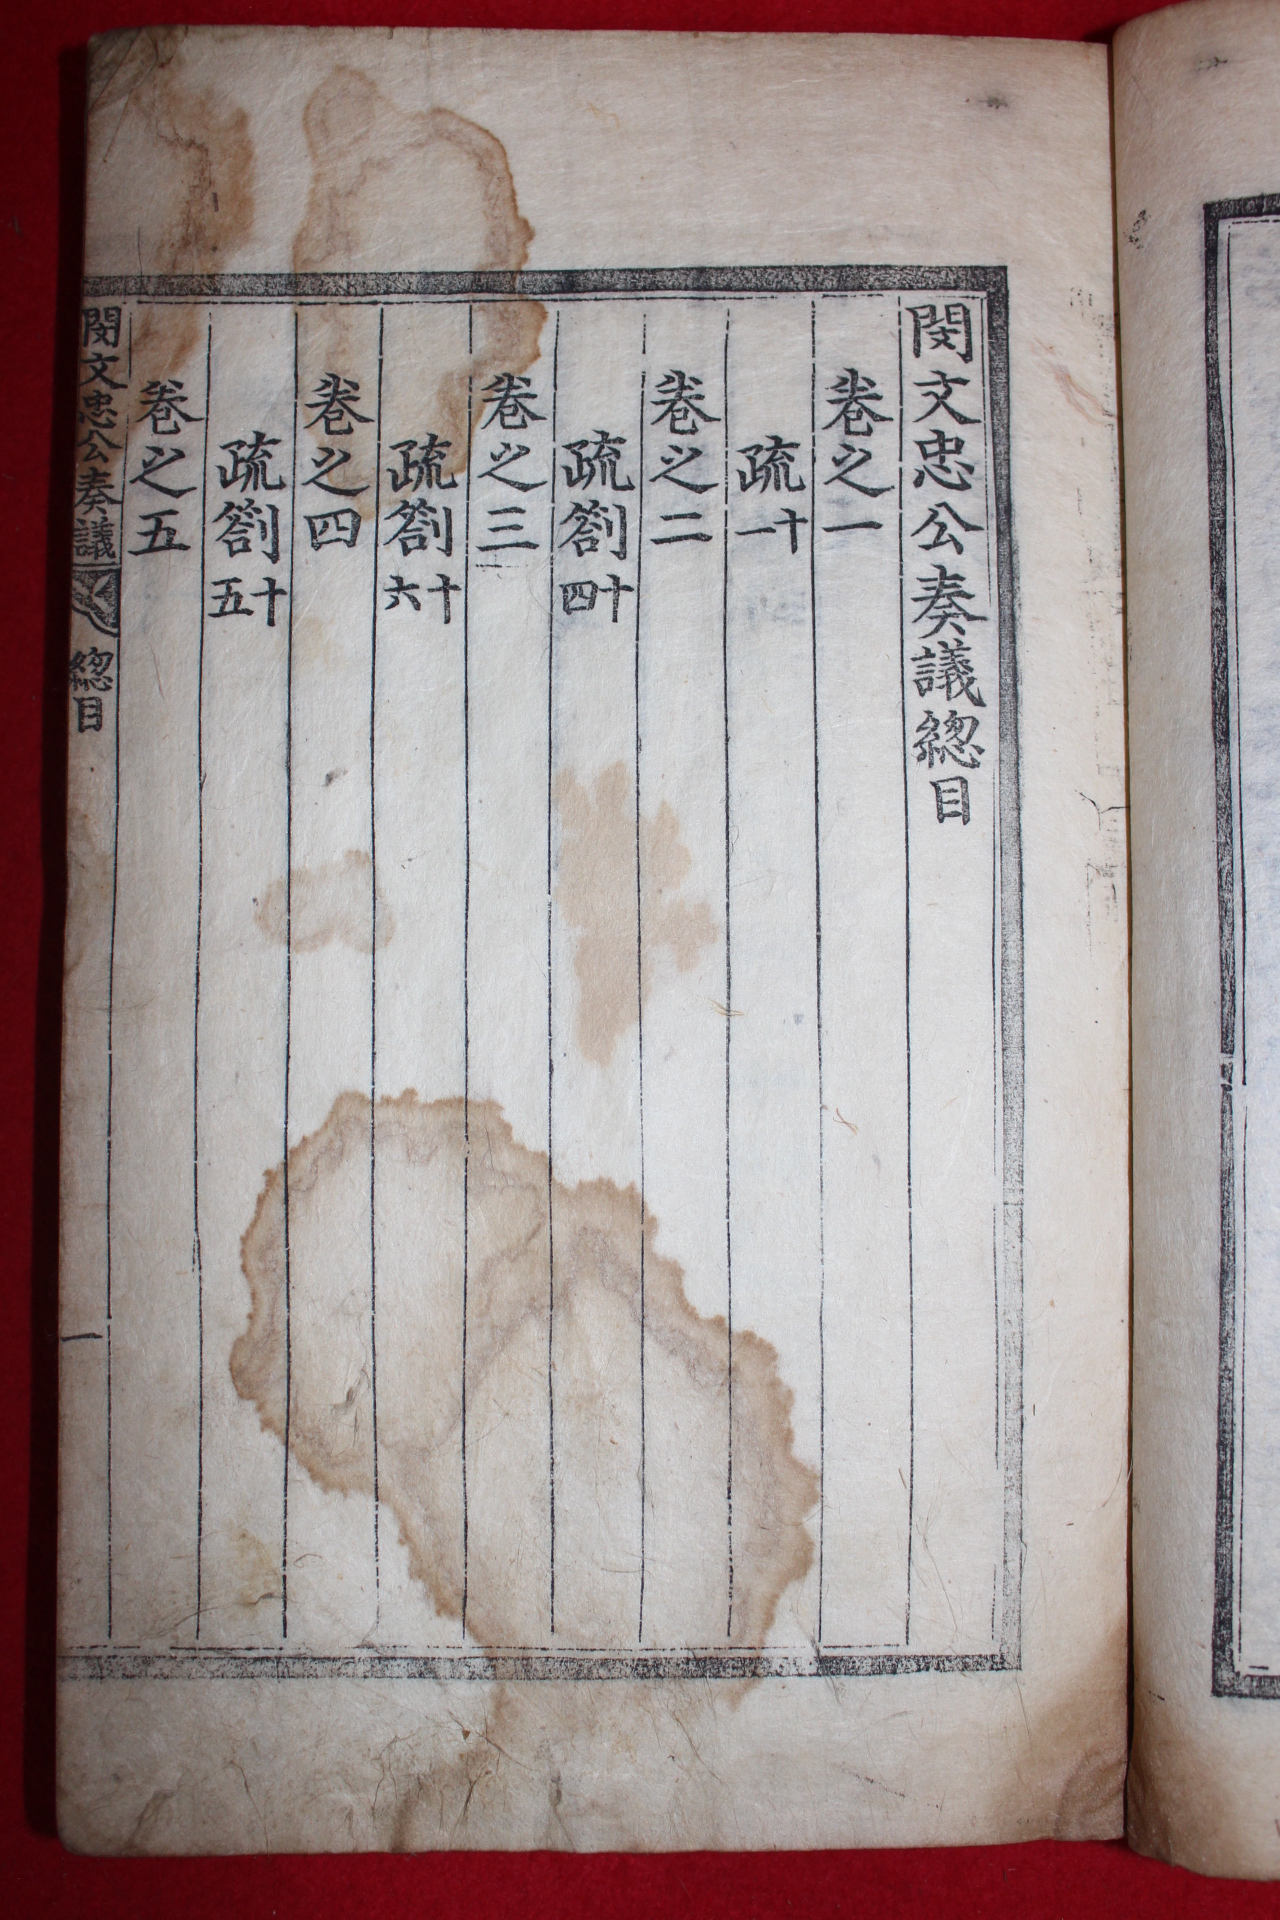 閔文忠公奏議總目
卷之一
疏十一
卷之二
疏劄十四
卷之三
疏劄十六
卷之四
疏劄十五
卷之五
閔文忠公奏議 總目 一